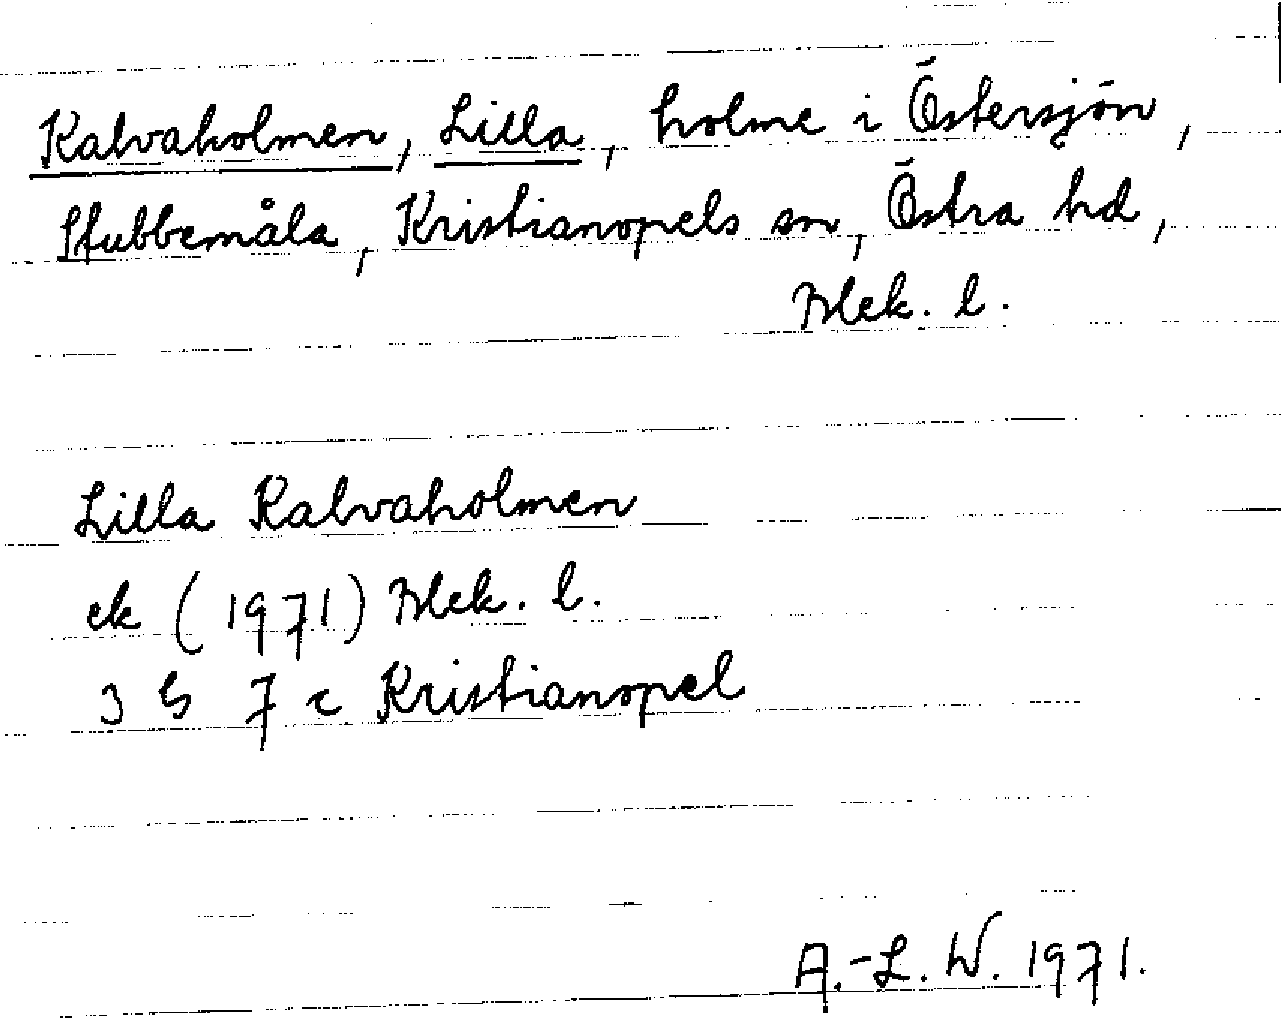 Kalvaholmen, Lilla, holme i Östersjön,
Stubbemåla, Kristianopels sn, Östra hd,
Blek. l.
Lilla Kalvaholmen
ek (1971) Blek. l.
3 G 7 c Kristianopel
A.-L. W. 1971.